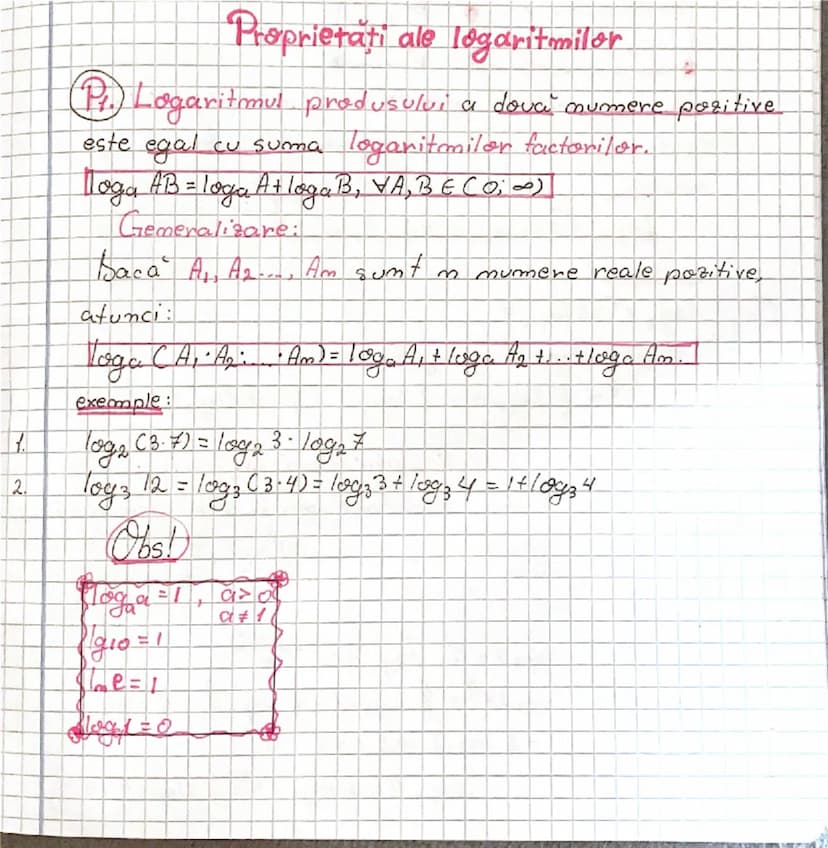 Proprietăți ale logaritmilor
P₁. Logaritmul produsului a două numere pozitive
este egal cu suma logaritmilor factorilor.
logₐ AB = logₐ A + logₐ B, ∀A, B ∈ (0; ∞)
Generalizare:
Dacă A₁, A₂..., Am sunt n numere reale pozitive,
atunci:
logₐ (A₁ · A₂ · ... · Am) = logₐ A₁ + logₐ A₂ + ... + logₐ Am.
exemple:
1. log₂ (3·7) = log₂ 3 · log₂ 7
2. log₃ 12 = log₃ (3·4) = log₃ 3 + log₃ 4 = 1 + log₃ 4
Obs!
logₐ a = 1, a > 0
a ≠ 1
lg10 = 1
ln e = 1
logₐ 1 = 0